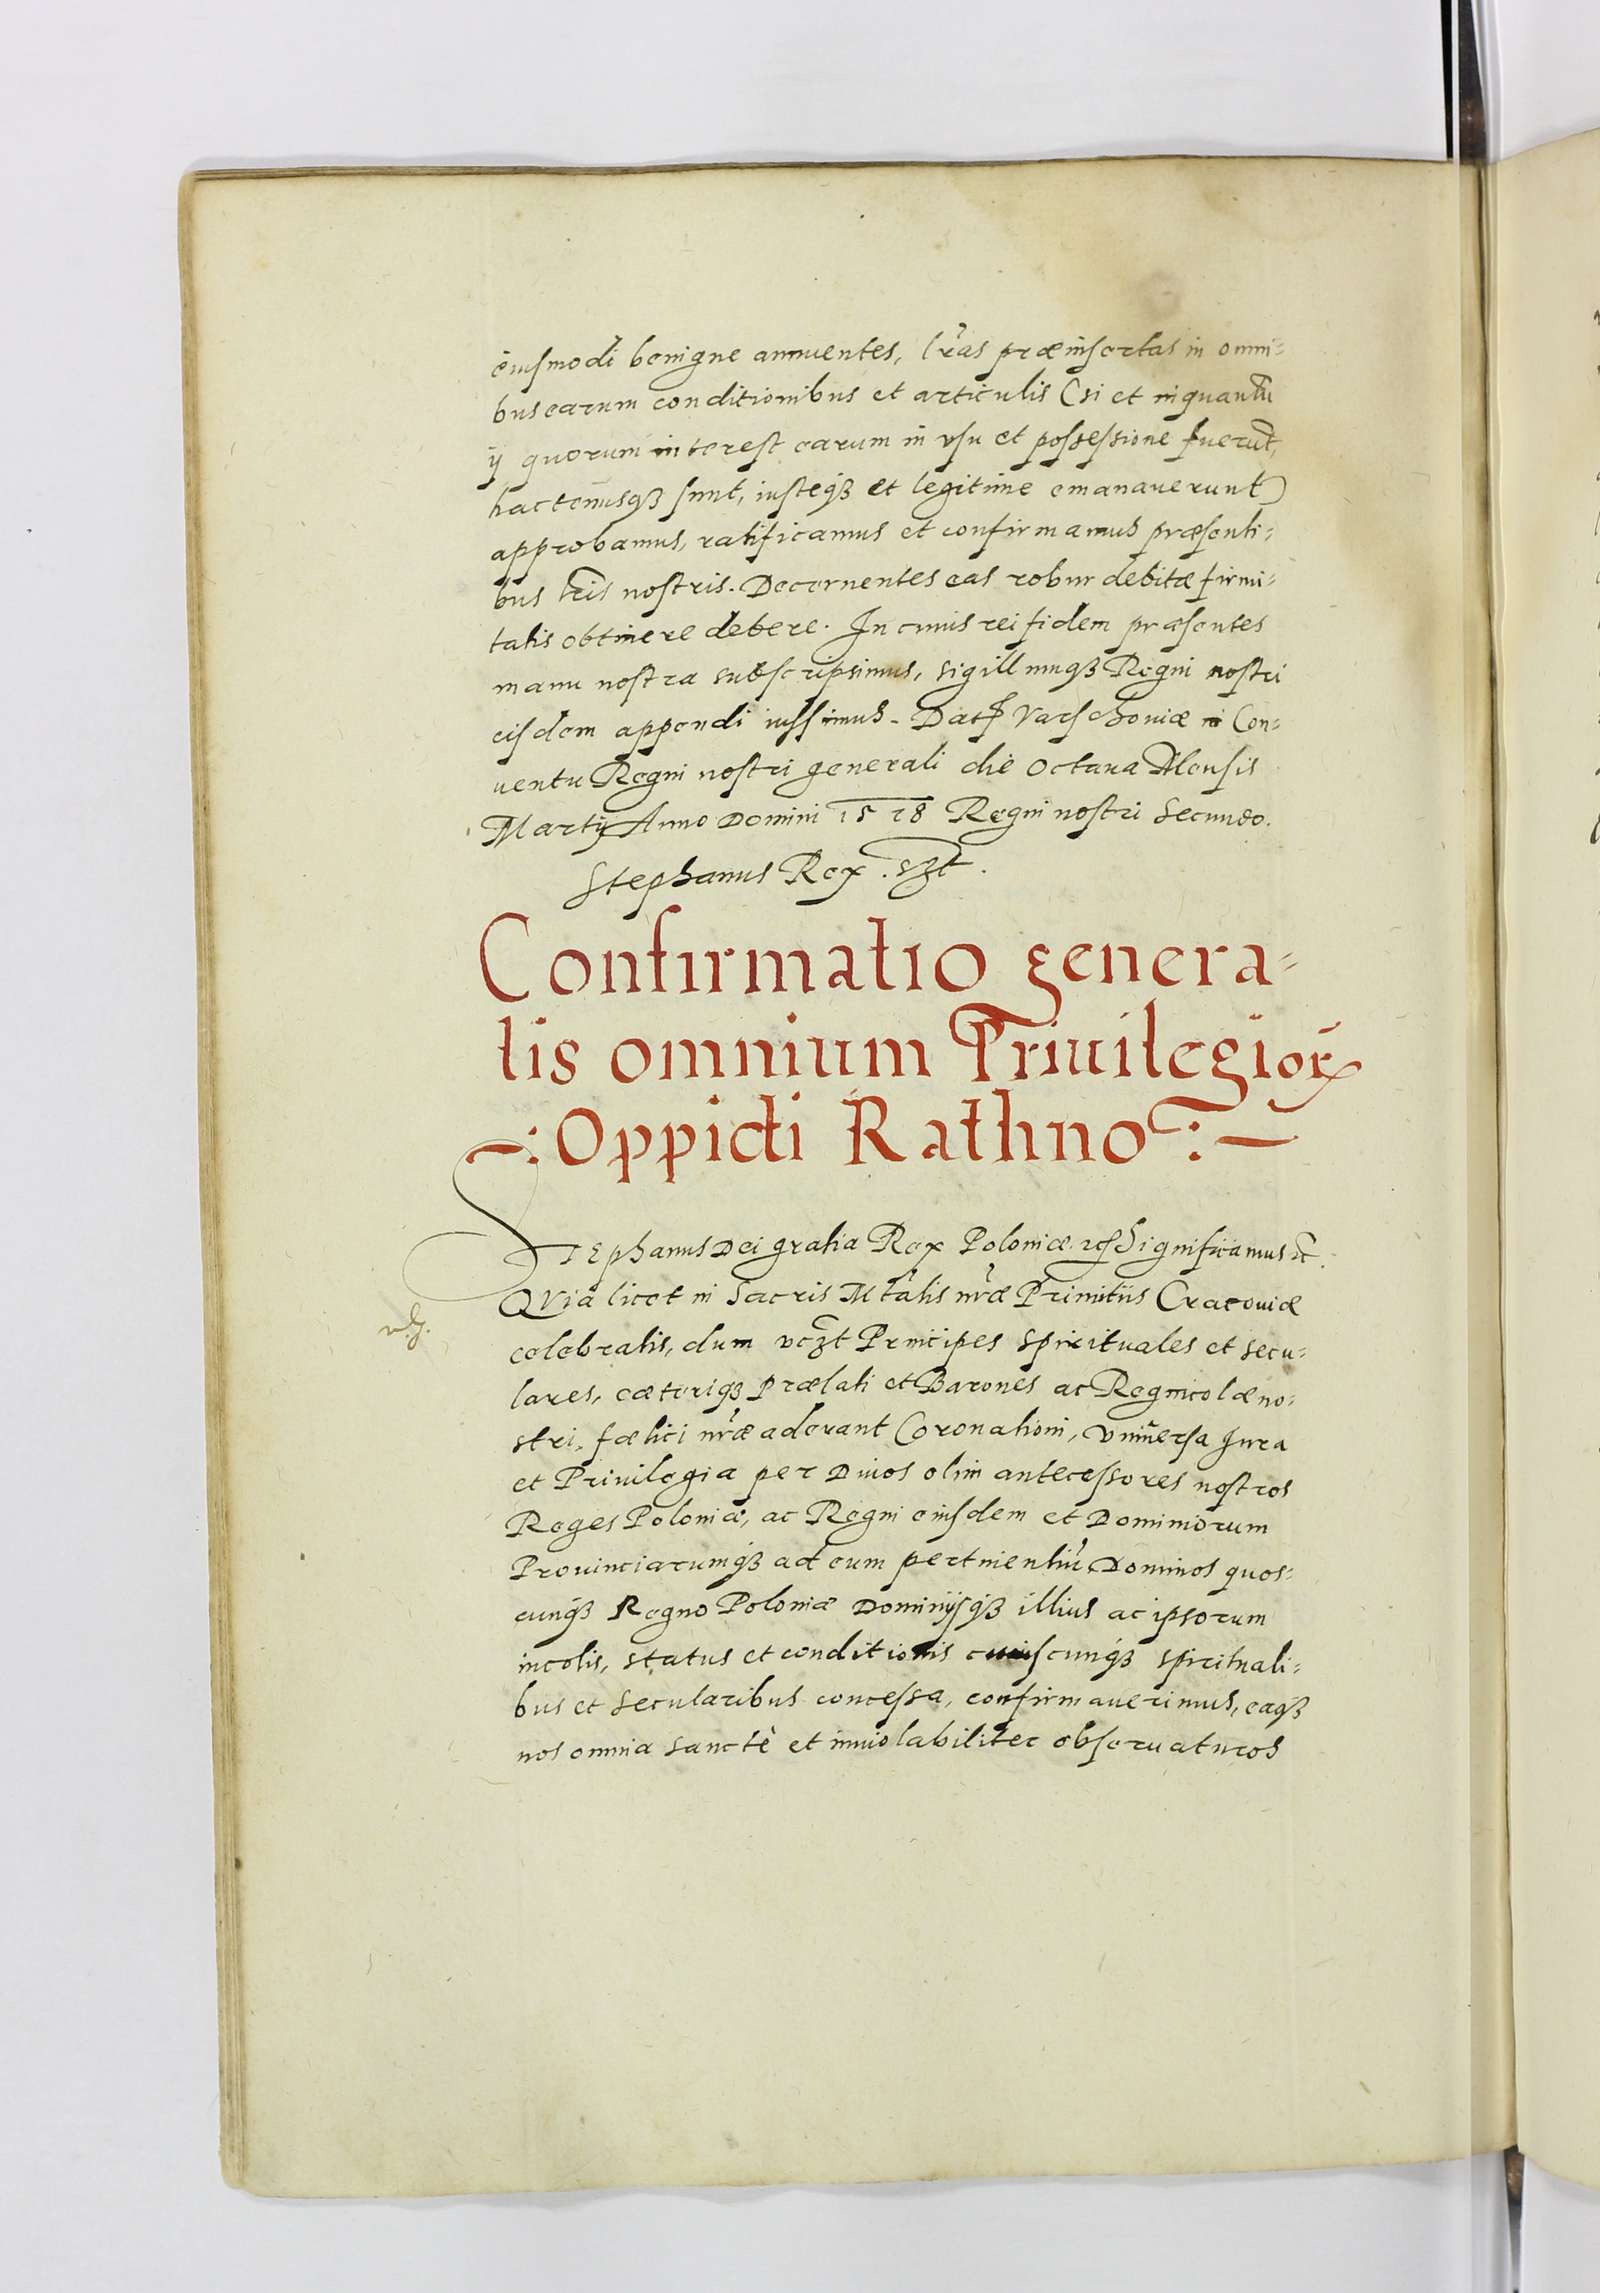 eiusmodi benigne annuentes, lr̃as præinsertas in omni-
bus earum conditionibus et articulis (si et inquantũ
ij quorum interest earum in vsu et possessione fuerũt,
hactenusq₃ sunt, iusteq₃ et legitime emanauerunt)
approbamus, ratificamus et confirmamus præsenti-
bus lr̃is nostris. Decernentes eas robur debitæ firmi-
tatis obtinere debere. In cuius rei fidem præsentes
manu nostra subscripsimus, sigillumq₃ Regni nostri
eisdem appendi iussimus. Dat Varschouiæ in Con-
uentu Regni nostri generali die Octaua Mensis
Martij Anno Domini 1578 Regni nostri Secundo.
Stephanus Rex. szt.
Confirmatio genera-
lis omnium Priuilegiorꝝ
Oppidi Rathno
STEphanus Dei gratia Rex Poloniæ etc Significamus etc.
QVia licet in Sacris Mt̃atis nr̃æ Primitiis Cracouiæ
celebratis, dum vcz̃t Principes spirituales et secu-
lares, cæteriq₃ Prælati et Barones ac Regnicolæ no-
stri, fælici nr̃æ aderant Coronationi, vniuersa Iura
et Priuilegia per Diuos olim antecessores nostros
Reges Poloniæ, ac Regni eiusdem et Dominiorum
Prouinciarumq₃ ad eum pertinentiũ Dominos quos-
cunq₃ Regno Poloniæ Dominijsq₃ illius ac ipsorum
incolis, status et conditionis cuiuscunq₃ spirituali-
bus et secularibus concessa, confirmauerimus, eaq₃
nos omnia sanctè et inuiolabiliter obseruaturos